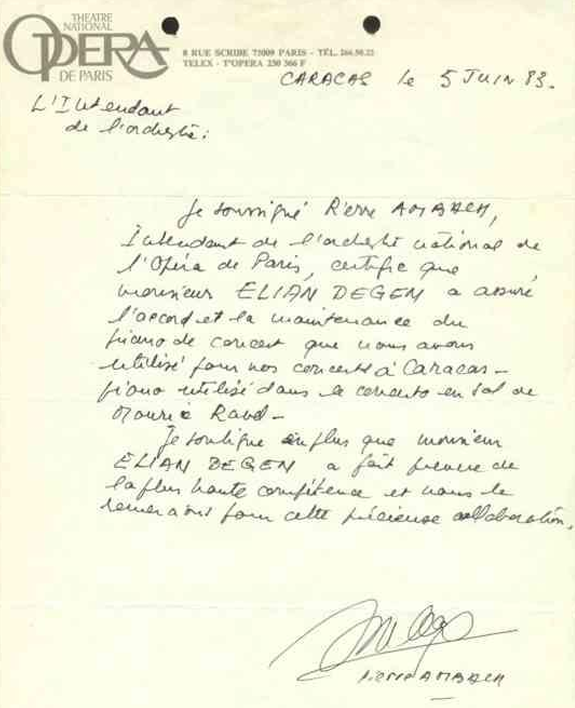 THEATRE
NATIONAL
OPERA
DE PARIS
8 RUE SCRIBE 75009 PARIS - TÉL. 266.50.22
TELEX - T'OPERA 230 366 F
CARACAS le 5 JUIN 83.
L'Intendant
de l'orchestre:
Je soussigné Pierre AMBACH,
Intendant de l'orchestre national de
l'Opéra de Paris, certifie que
monsieur ELIAN DEGEN a assuré
l'accord et la maintenance du
piano de concert que nous avons
utilisé pour nos concerts à Caracas -
piano utilisé dans le concerto en sol de
Maurice Ravel -
Je souligne en plus que monsieur
ELIAN DEGEN a fait preuve de
la plus haute compétence et nous le
remercions pour cette précieuse collaboration.
Pierre AMBACH